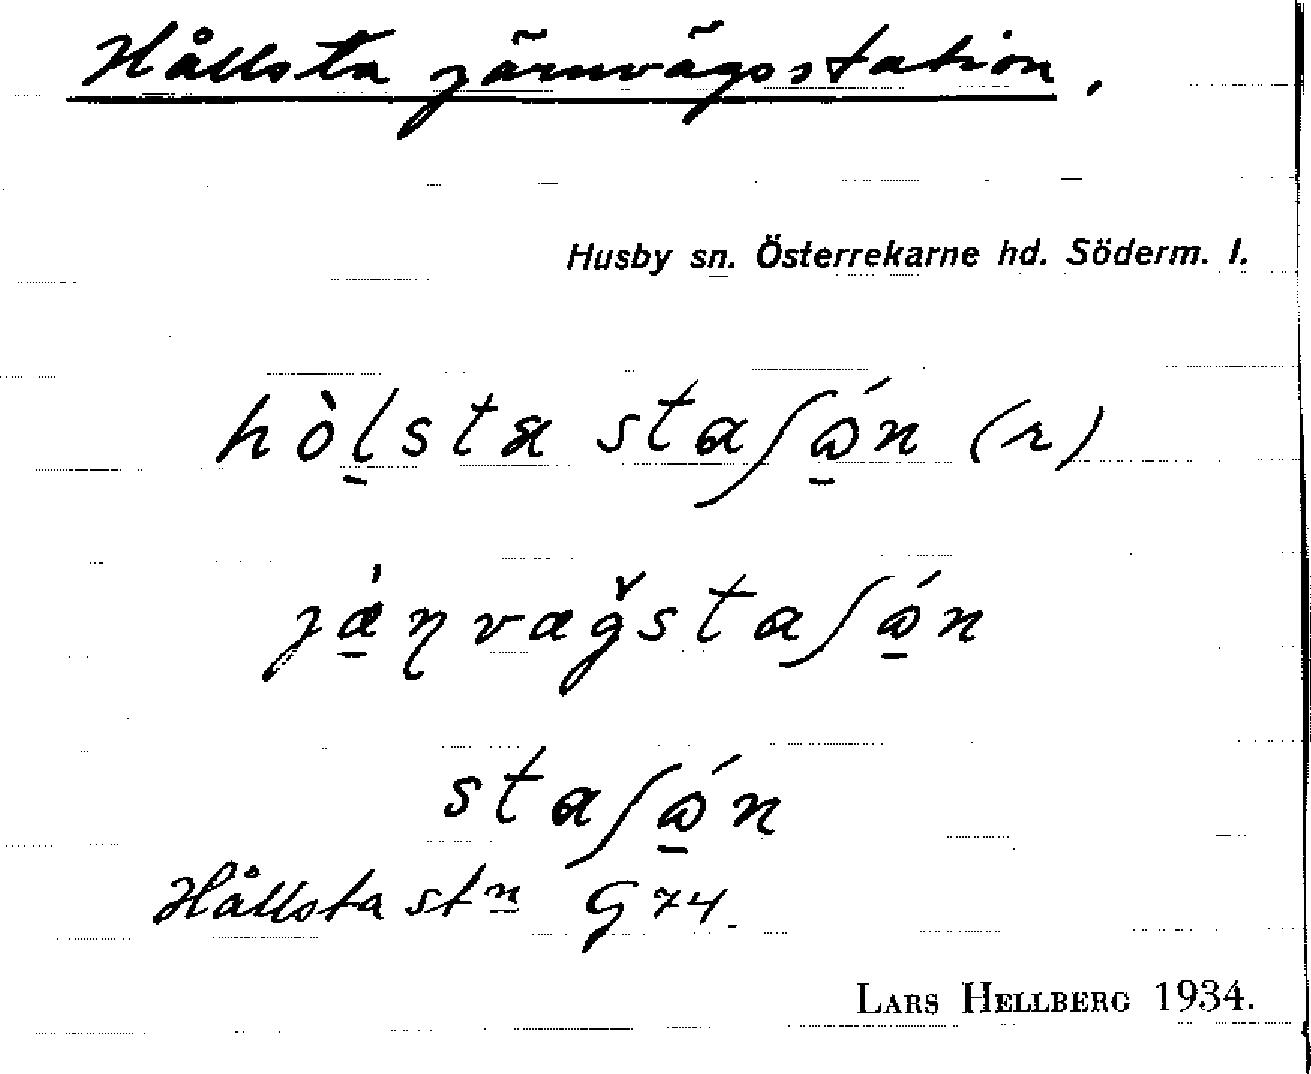 Hållsta järnvägsstation,
Husby sn. Österrekarne hd. Söderm. l.
hòl̠sta staʃώ̠n (r)
jæ̠̀ɳvaǧstaʃώ̠n
staʃώ̠n
Hållsta stn G 74.
LARS HELLBERG 1934.